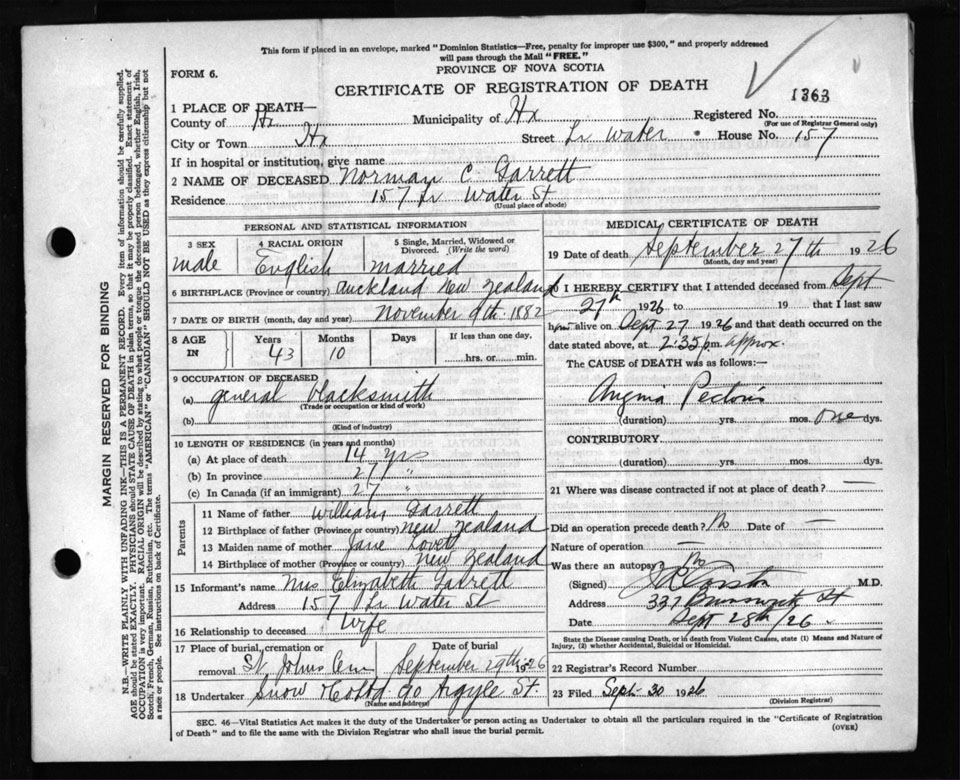 This form if placed in an envelope, marked "Dominion Statistics—Free, penalty for improper use $300," and properly addressed
will pass through the Mail "FREE."
PROVINCE OF NOVA SCOTIA
FORM 6.
CERTIFICATE OF REGISTRATION OF DEATH
1363
1 PLACE OF DEATH—
County of Hx Municipality of Hx Registered No.
(For use of Registrar General only)
City or Town Hx Street Lr Water House No. 157
If in hospital or institution, give name
2 NAME OF DECEASED Norman C. Garrett
Residence 157 Lr Water St
(Usual place of abode)
PERSONAL AND STATISTICAL INFORMATION
3 SEX 4 RACIAL ORIGIN 5 Single, Married, Widowed or
Divorced. (Write the word)
male English married
6 BIRTHPLACE (Province or country) Auckland New Zealand
7 DATE OF BIRTH (month, day and year) November 9th. 1882
8 AGE IN Years Months Days If less than one day,
43 10 hrs. or min.
9 OCCUPATION OF DECEASED
(a) general blacksmith
(Trade or occupation or kind of work)
(b)
(Kind of industry)
10 LENGTH OF RESIDENCE (in years and months)
(a) At place of death 14 yrs
(b) In province 27 "
(c) In Canada (if an immigrant) 27 "
Parents
11 Name of father William Garrett
12 Birthplace of father (Province or country) New Zealand
13 Maiden name of mother Jane Lovett
14 Birthplace of mother (Province or country) New Zealand
15 Informant's name Mrs Elizabeth Garrett
Address 157 Lr Water St
16 Relationship to deceased Wife
17 Place of burial, cremation or Date of burial
removal St. Johns Cem September 29th 1926
18 Undertaker Snow & Co Ltd 90 Argyle St.
(Name and address)
MEDICAL CERTIFICATE OF DEATH
19 Date of death September 27th 1926
(Month, day and year)
I HEREBY CERTIFY that I attended deceased from Sept
27th 1926 to 19 that I last saw
him alive on Sept 27 1926 and that death occurred on the
date stated above, at 2:35 p.m. approx.
The CAUSE OF DEATH was as follows:—
Angina Pectoris
(duration) yrs. mos. One dys.
CONTRIBUTORY
(duration) yrs. mos. dys.
21 Where was disease contracted if not at place of death? —
Did an operation precede death? No Date of —
Nature of operation —
Was there an autopsy? No
(Signed) M.D.
Address 337 Brunswick St
Date Sept 28th/26
State the Disease causing Death, or in death from Violent Causes, state (1) Means and Nature of
Injury, (2) whether Accidental, Suicidal or Homicidal.
22 Registrar's Record Number
23 Filed Sept 30 1926
(Division Registrar)
SEC. 46—Vital Statistics Act makes it the duty of the Undertaker or person acting as Undertaker to obtain all the particulars required in the "Certificate of Registration
of Death" and to file the same with the Division Registrar who shall issue the burial permit.
(OVER)
MARGIN RESERVED FOR BINDING
N.B.—WRITE PLAINLY WITH UNFADING INK—THIS IS A PERMANENT RECORD. Every item of information should be carefully supplied.
AGE should be stated EXACTLY. PHYSICIANS should STATE CAUSE OF DEATH in plain terms, so that it may be properly classified. Exact statement of
OCCUPATION is very important. RACIAL ORIGIN will be described by stating to what people or tongue the deceased person belonged, whether English, Irish,
Scotch, French, German, Russian, Ruthenian, etc. The terms "AMERICAN" or "CANADIAN" SHOULD NOT BE USED as they express citizenship but not
a race or people. See instructions on back of Certificate.